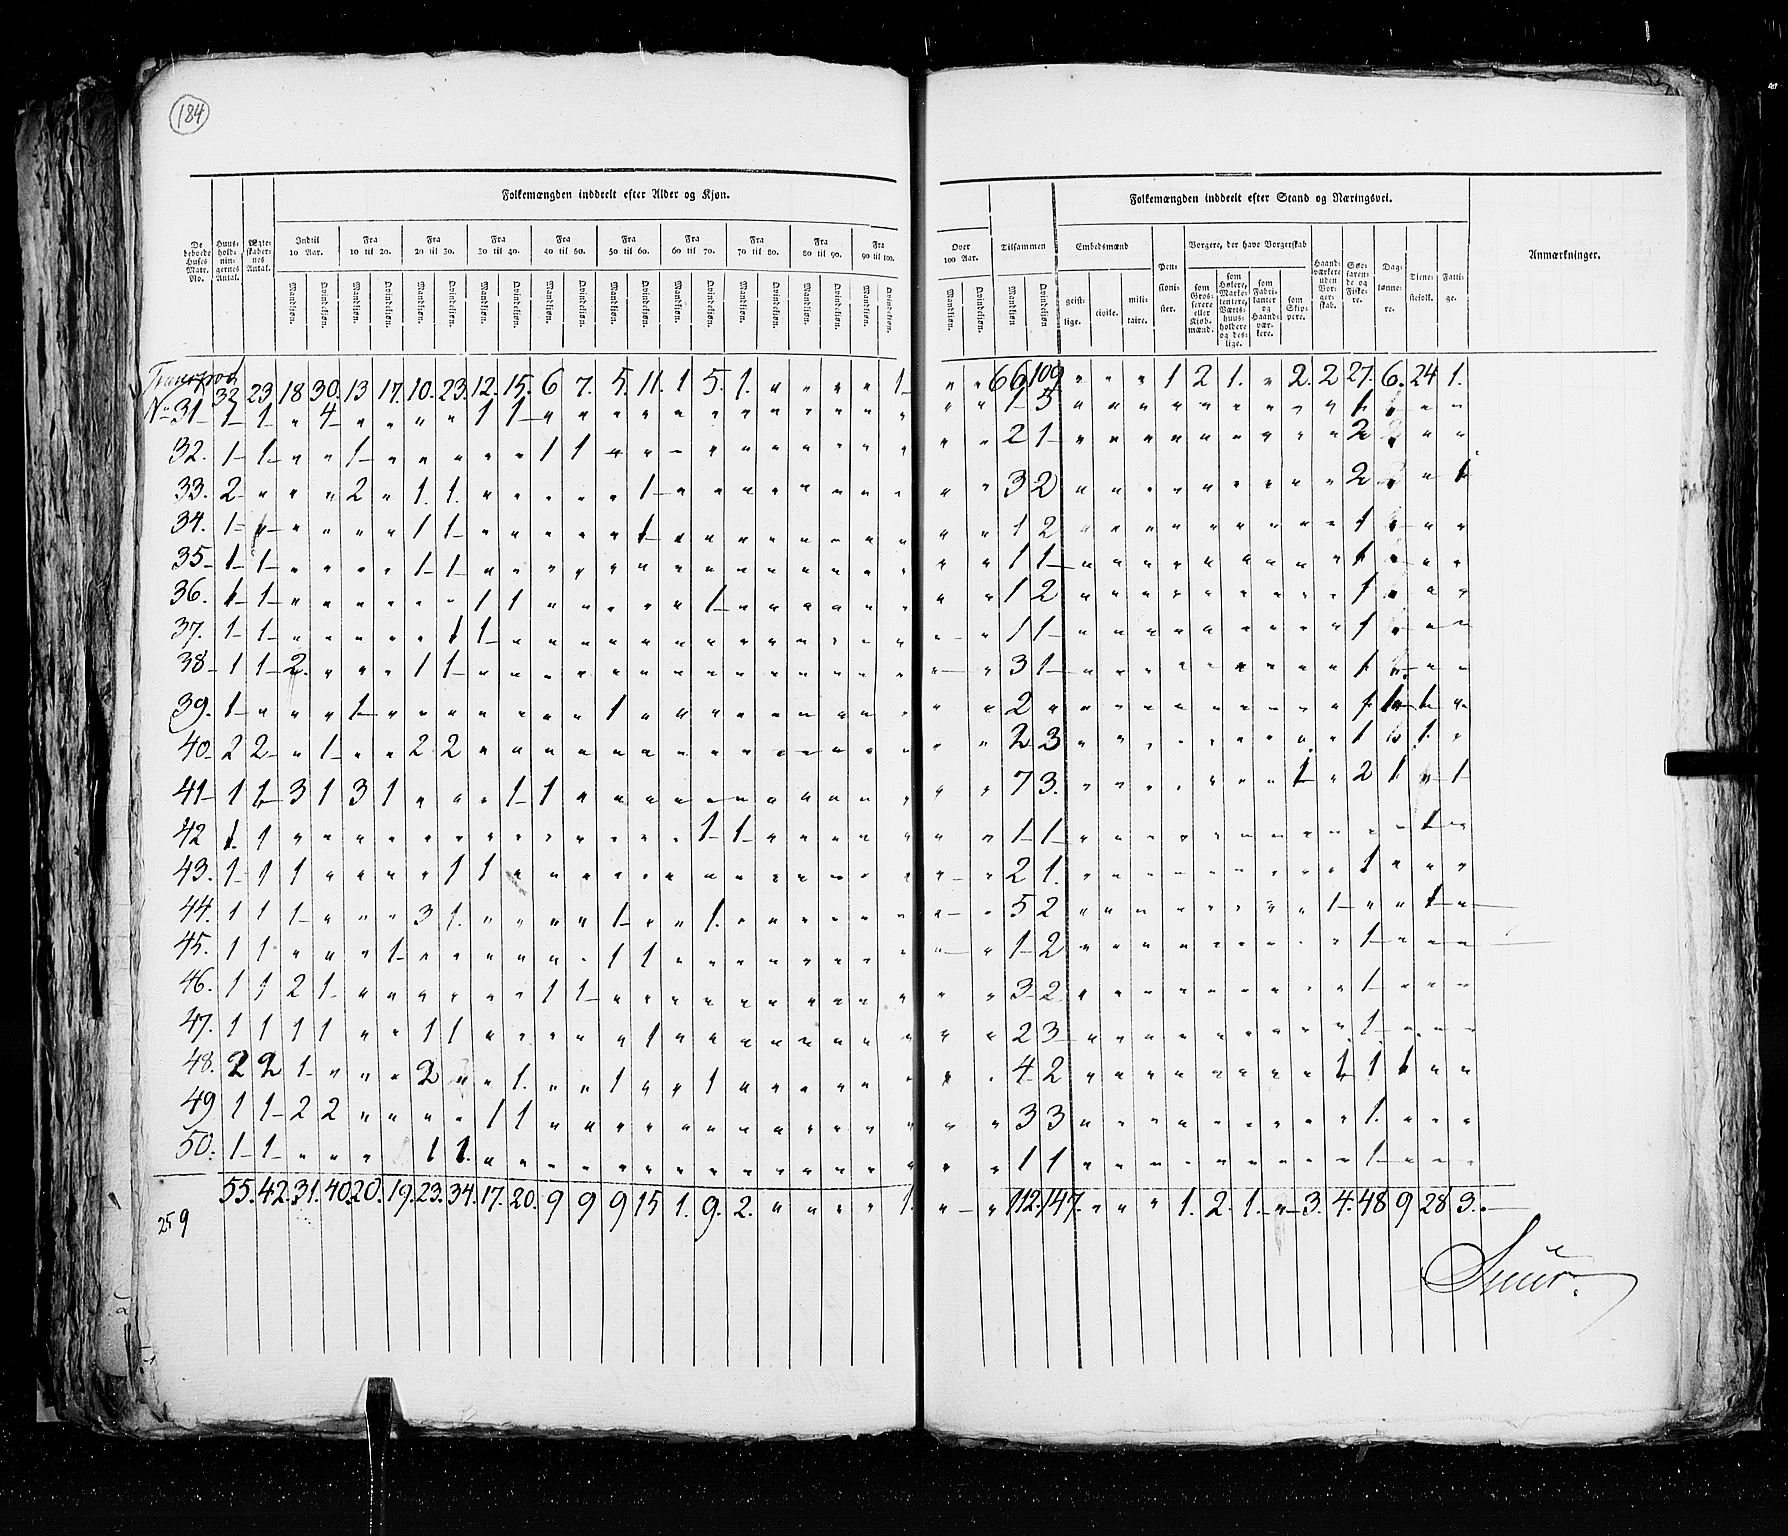 184
Folkemængden inddeelt efter Alder og Kjøn.
De beboede Huses Matr. No. Huusholdningernes Antal. Ægteskabernes Antal. Indtil 10 Aar. Fra 10 til 20. Fra 20 til 30. Fra 30 til 40. Fra 40 til 50. Fra 50 til 60. Fra 60 til 70. Fra 70 til 80. Fra 80 til 90. Fra 90 til 100.
Mandkjøn. Qvindekjøn. Mandkjøn. Qvindekjøn. Mandkjøn. Qvindekjøn. Mandkjøn. Qvindekjøn. Mandkjøn. Qvindekjøn. Mandkjøn. Qvindekjøn. Mandkjøn. Qvindekjøn. Mandkjøn. Qvindekjøn. Mandkjøn. Qvindekjøn. Mandkjøn. Qvindekjøn.
Transport 32 23. 18 30. 13 17. 10. 23. 12. 15. 6 7. 5. 11. 1 5. 1. " " " " 1.
No 31 1 1 " 4 " " " " 1 1 " " " " " " " " " " " "
32. 1 1 " " 1 " " " " " 1 1 " " " " " " " " " "
33. 2 " " " 2 " 1. 1. " " " " " 1 " " " " " " " "
34. 1 " " " " " 1 1 " " " " " 1 " " " " " " " "
35 1 1 " " " " 1 1 " " " " " " " " " " " " " "
36. 1 1 " " " " " " 1 1 " " " " " 1 " " " " " "
37. 1 1 " " " " " 1 1 " " " " " " " " " " " " "
38 1 1 2. " " " 1 1 " " " " " " " " " " " " " "
39. 1 " " " 1 " " " " " " " 1 " " " " " " " " "
40 2 2 " 1 " " 2 2 " " " " " " " " " " " " " "
41 1 1 3 1 3 1 " " " 1 1 " " " " " " " " " " "
42 1. 1 " " " " " " " " " " " " " 1 1 " " " " "
43. 1 1 1 " " " " 1 1 " " " " " " " " " " " " "
44. 1 1 1 " " " 3 1. " " " " 1 " " 1. " " " " " "
45. 1 1 " " " 1 " " " " " " 1 1 " " " " " " " "
46. 1 1 2 1 " " " " " " 1 1 " " " " " " " " " "
47. 1 1 1 1 " " 1 1 " " " " " 1 " " " " " " " "
48. 2 2 1 " " " 2 " " 1. " " 1 " " 1 " " " " " "
49 1 1 2 2 " " " " 1 1 " " " " " " " " " " " "
50. 1 1 " " " 1 1. " " " " " " " " " " " " " "
55. 42. 31. 40. 20. 19. 23. 34. 17. 20. 9 9 9 15 1. 9. 2. " " " " 1.
259
Folkemængden inddeelt efter Stand og Næringsvei.
Over 100 Aar. Tilsammen Embedsmænd Pensionister. Borgere, der have Borgerskab Haandværkere uden Borgerskab. Søefarende og Fiskere. Daglønnere. Tienestefolk. Fattige. Anmærkninger.
Mandkjøn. Qvindekjøn. Mandkjøn Qvindekjøn geistlige. civile. militaire. som Grosserere eller Kjøbmænd. som Høkere, Marketentere, Værtshuusholdere og deslige. som Fabrikanter og Haandværkere. som Skippere.
" " 66 109 " " " 1 2 1. " 2. 2 27. 6. 24 1.
" " 1 5 " " " " " " " " " 1 " " "
" " 2 1 " " " " " " " " " 2 " "
" " 3 2 " " " " " " " " " 2 " 1
" " 1 2 " " " " " " " " " 1 " "
" " 1 1 " " " " " " " " " 1 " "
" " 1 2 " " " " " " " " " 1 " "
" " 1 1 " " " " " " " " " 1 " "
" " 3 1 " " " " " " " " " 1 " "
" " 2 " " " " " " " " " " 1 1 1 "
" " 2 3 " " " " " " " " " 1 1. "
" " 7 3. " " " " " " " 1 " 2 1 " 1
" " 1 1 " " " " " " " " " " " 1 "
" " 2 1. " " " " " " " " " 1 " " "
" " 5 2 " " " " " " " " 1 " " 1 "
" " 1 2 " " " " " " " " " 1 " " "
" " 3 2 " " " " " " " " " 1 " " "
" " 2 3 " " " " " " " " " 1 " " "
" " 4 2 " " " " " " " " 1 1 1 " "
" " 3 3 " " " " " " " " " 1. " " "
" " 1 1 " " " " " " " " " 1 " " "
" " 112. 147. " " " 1. 2. 1. " 3. 4. 48 9 28 3.